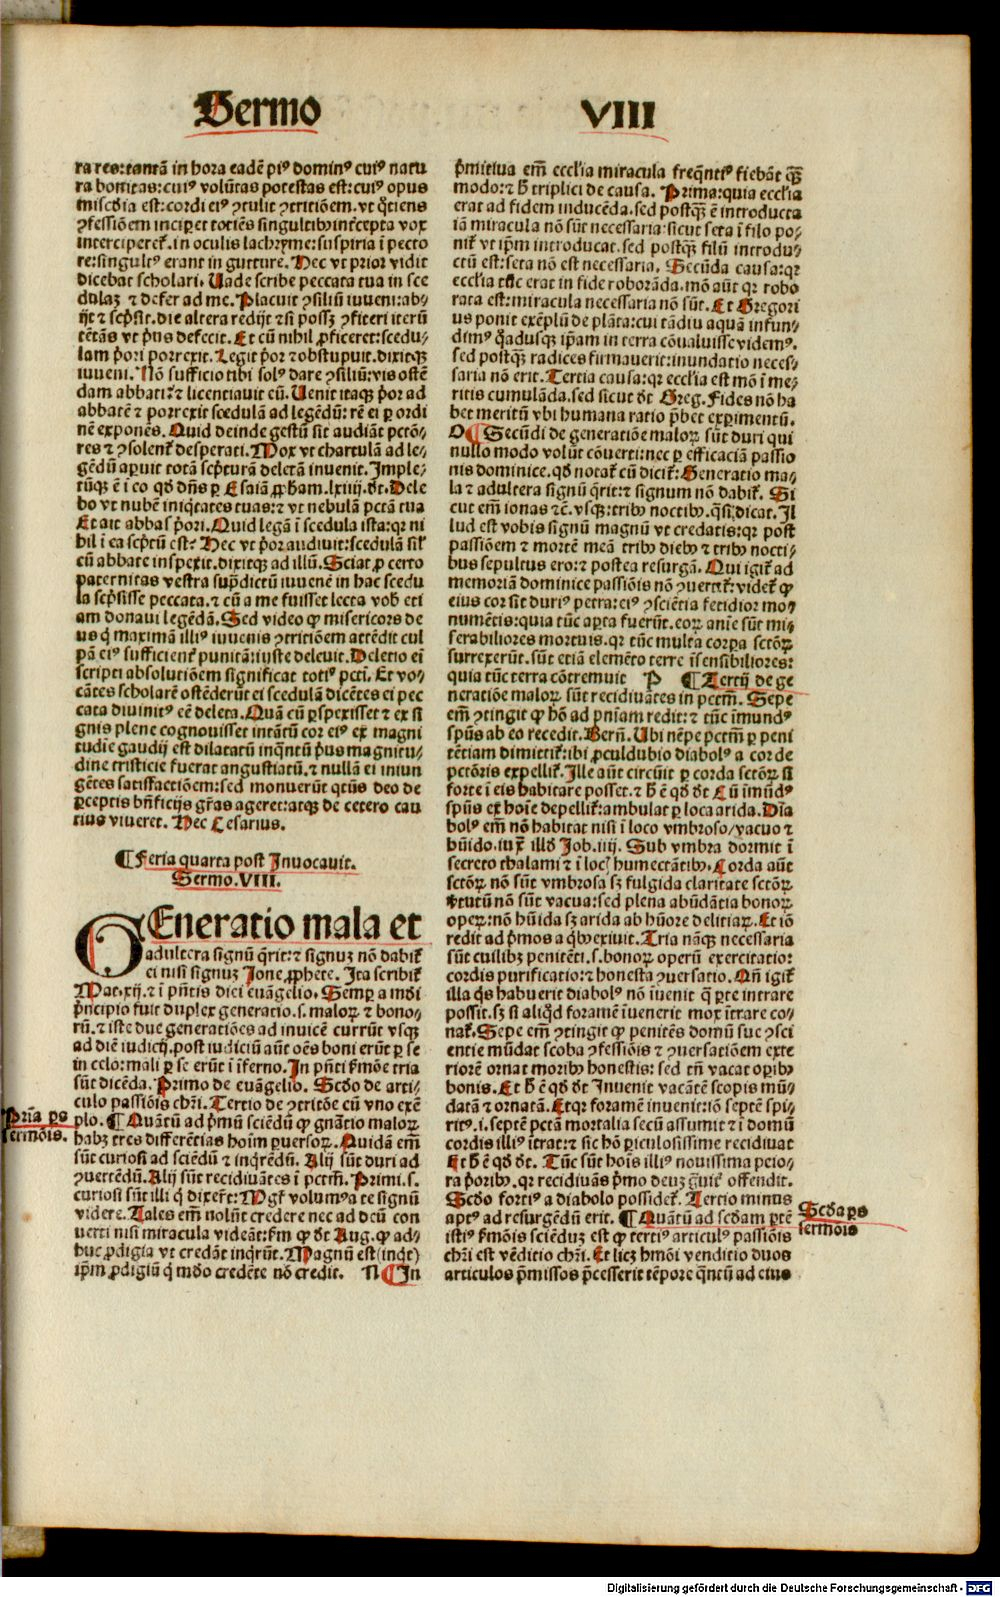 Sermo VIII
ra res: tantā in hora eadē pi⁹ domin⁹ cui⁹ natu
ra bonitas: cui⁹ volūtas potestas est: cui⁹ opus
misc̄dia est: cordi ei⁹ ꝯtulit ꝯtritiōem. vt q̊tiens
ꝯfessiōem inciꝑet totiēs singultibꝫ int̄cepta vox
interciperet᷑. in oculis lachryme: suspiria ī pecto
re: singult⁹ erant in gutture. Hec vt prior vidit
dicebat scholari. Uade scribe peccata tua in sce
dulaꝫ ⁊ defer ad me. Placuit ꝯsiliū iuueni: ab⸗
ijt ⁊ scp̄sit. die altera redijt ⁊ si possꝫ ꝯfiteri iterū
tētās vt p̄us defecit. Et cū nihil ꝓficeret: scedu⸗
lam p̄ori porrexit. Legit p̄or ⁊ obstupuit. dixitqꝫ
iuueni. Nō sufficio tibi sol⁹ dare ꝯsiliū: vis ostē
dam abbati? ⁊ licentiauit eū. Uenit itaqꝫ p̄or ad
abbatē ⁊ porrexit scedulā ad legēdū: rē ei ꝑ ordi
nē exponēs. Quid deinde gestū sit audiāt pctō⸗
res ⁊ ꝯsolent᷑ desperati. Mox vt chartulā ad le⸗
gēdū aperuit totā scp̄turā deletā inuenit. Imple⸗
tūqꝫ ē ī eo qd̄ dn̄s ꝑ Esaiā ꝓpham. lxiiij. dt̄. Dele
bo vt nubē iniq̇tates tuas: ⁊ vt nebulā pctā tua
Et ait abbas p̄ori. Quid legā ī scedula ista: qꝛ ni
hil ī ea scp̄tū est? Hec vt p̄or audiuit: scedulā sil᷑
cū abbate inspexit. dixitqꝫ ad illū. Sciat ꝓ certo
paternitas vestra sup̄dictū iuuenē in hac scedu
la scp̄sisse peccata. ⁊ cū a me fuisset lecta vob̄ eti
am donaui legēdā. Sed video ꝙ misericors de
us q̇ maximā illi⁹ iuuenis ꝯtritiōem attēdit cul
pā ei⁹ sufficient᷑ punitā: iuste deleuit. Deletio ei̅
scripti absolutiōem significat toti⁹ pcti̅. Et vo⸗
cātes scholarē ostēderūt ei scedulā dicētes ei pec
cata diuinit⁹ eē deleta. Quā cū ꝑspexisset ⁊ ex si
gnis plene cognouisset intātū cor ei⁹ ex magni
tudie gaudij est dilatatū inq̄ntū p̄us magnitu⸗
dine tristicie fuerat angustiatū. ⁊ nullā ei iniun
gētes satisfactiōem: sed monuerūt qten⁹ deo de
ꝑceptis bn̄ficijs gr̄as ageret: atqꝫ de cetero cau
tius viueret. Hec Cesarius.
¶ Feria quarta post Inuocauit.
Sermo. VIII.
GEneratio mala et
adultera signū q̄rit: ⁊ signuꝫ nō dabit᷑
ei nisi signuꝫ Jone ꝓphete. Ita scribit᷑
Mat. xij. ⁊ ī p̄ntis diei euāgelio. Semꝑ a mūdi
p̄ncipio fuit duplex generatio. s. maloꝝ ⁊ bono⸗
rū. ⁊ iste due generatiōes ad inuicē currūt vsqꝫ
ad diē iudicij. post iudiciū aūt oēs boni erūt ꝑ se
in celo: mali ꝑ se erūt ī īferno. In p̄nti s̄mōe tria
sūt dicēda. Primo de euāgelio. Scd̄o de arti⸗
culo passiōis chr̄i. Tertio de ꝯtritōe cū vno exē
plo. ¶ Quātū ad p̄mū sciēdū ꝙ gn̄atio maloꝝ
habꝫ tres differētias hoīm ꝑuersoꝝ. Quidā em̄
sūt curiosi ad sciēdū ⁊ inq̇rēdū. Alij sūt duri ad
ꝯuertēdū. Alij sūt recidiuātes ī pctm̄. Primi. s.
curiosi sūt illi q̇ dixer̄t: Mgr̄ volum⁹ a te signū
videre. Tales em̄ nolūt credere nec ad deū con
uerti nisi miracula videāt: s̄m ꝙ dt̄ Aug. ꝙ ad⸗
huc ꝓdigia vt credāt inq̇rūt. Magnū est (inq̇t)
ip̄m ꝓdigiū q̇ mūdo credēte nō credit. N ¶ In
Prīa ps
sermōis.
p̄mitiua em̄ eccl̄ia miracula freq̄nt᷑ fiebāt qꝫ
modo: ⁊ h̄ triplici de causa. Prima: quia eccl̄ia
erat ad fidem inducēda. sed postqꝫ ē introducta
iā miracula nō sūt necessaria: sicut seta ī filo po⸗
nit᷑ vt ip̄m introducat. sed postqꝫ filū introdu⸗
ctū est: seta nō est necessaria. Secūda causa: qꝛ
eccl̄ia tūc erat in fide roborāda. mō aūt qꝛ robo
rata est: miracula necessaria nō sūt. Et Gregori
us ponit exēplū de plāta: cui tādiu aquā infun⸗
dim⁹ q̊adusqꝫ ip̄am in terra cōualuisse videm⁹.
sed postqꝫ radices firmauerit: inundatio neces⸗
saria nō erit. Tertia causa: qꝛ eccl̄ia est mō ī me⸗
ritis cumulāda. sed sicut dt̄ Greg. Fides nō ha
bet meritū vbi humana ratio p̄bet exꝑimentū.
O ¶ Secūdi de generatiōe maloꝝ sūt duri qui
nullo modo volūt cōuerti: nec ꝑ efficaciā passio
nis dominice. qd̄ notat᷑ cū dicit᷑: Generatio ma⸗
la ⁊ adultera signū q̄rit: ⁊ signum nō dabit᷑. Si
cut em̄ ionas ⁊c̄. vsqꝫ: tribꝫ noctibꝫ. q̄si dicat. Il
lud est vobis signū magnū vt credatis: qꝛ post
passiōem ⁊ mortē meā tribꝫ diebꝫ ⁊ tribꝫ nocti⸗
bus sepultus ero: ⁊ postea resurgā. Qui igit᷑ ad
memoriā dominice passiōis nō ꝯuertit᷑: videt᷑ ꝙ
eius cor sit duri⁹ petra: ei⁹ ꝯsciētia fetidior mo⸗
numētis: quia tūc aꝑta fuerūt. eoꝝ anīe sūt mi⸗
serabiliores mortuis. qꝛ tūc multa corꝑa sctōꝝ
surrexerūt. sūt etiā elemēto terre īsensibiliores:
quia tūc terra cōtremuit P ¶ Tertij de ge
neratiōe maloꝝ sūt recidiuātes in pctm̄. Sepe
em̄ ꝯtingit ꝙ hō ad pn̄iam redit: ⁊ tūc īmund⁹
spūs ab eo recedit. Bern̄. Ubi nēpe pctm̄ ꝑ peni
tētiam dimittit᷑: ibi ꝓculdubio diabol⁹ a corde
pctōris expellit᷑. Ille aūt circūit ꝑ corda sctōꝝ si
forte ī eis habitare posset. ⁊ h̄ ē qd̄ dt̄ Cū īmūd⁹
spūs ex hoīe depellit᷑: ambulat ꝑ loca arida. Dia
bol⁹ em̄ nō habitat nisi ī loco vmbroso/ vacuo ⁊
hūido. iux̄ illd̄ Job. iiij. Sub vmbra dormit ī
secreto thalami ⁊ ī locꝭ humectātibꝫ. Corda aūt
sctōꝝ nō sūt vmbrosa sꝫ fulgida claritate sctōꝝ
v̄tutū nō sūt vacua: sed plena abūdātia bonoꝝ
opeꝝ: nō hūida sꝫ arida ab hūore delitiaꝝ. Et iō
redit ad p̄mos a q̇bꝫ exiuit. Tria nāqꝫ necessaria
sūt cuilibꝫ penitēti. s. bonoꝝ operū exercitatio:
cordis purificatio: ⁊ honesta ꝯuersatio. Qn̄ igit᷑
illa q̇s habuerit diabol⁹ nō īuenit q̄ ꝑte intrare
possit. sꝫ si aliq̊d foramē īuenerit mox ītrare co⸗
nat᷑. Sepe em̄ ꝯtingit ꝙ penitēs domū sue ꝯsci
entie mūdat scoba ꝯfessiōis ⁊ ꝯuersatiōem exte
riorē ornat moribꝫ honestis: sed tn̄ vacat oꝑibꝫ
bonis. Et h̄ ē qd̄ dt̄ Inuenit vacātē scopis mū⸗
datā ⁊ ornatā. Etqꝛ foramē inuenit: iō septē spi⸗
rit⁹. i. septē pctā mortalia secū assumit ⁊ ī domū
cordis illi⁹ ītrat: ⁊ sic hō ꝑiculosissime recidiuat
Et h̄ ē qd̄ dt̄. Tūc sūt hoīs illi⁹ nouissima peio⸗
ra p̄oribꝫ. qꝛ recidiuās p̄mo deuꝫ g̊uit᷑ offendit.
Scd̄o forti⁹ a diabolo possidet᷑. Tertio minus
apt⁹ ad resurgēdū erit. ¶ Quātū ad scd̄am ꝑtē
isti⁹ s̄mōis sciēduꝫ est ꝙ terti⁹ articul⁹ passiōis
chr̄i est vēditio chr̄i. Et licꝫ hmōi venditio duos
articulos p̄missos p̄cesserit tēpore q̄ntū ad eius
Scd̄a ps
sermōis
Digitalisierung gefördert durch die Deutsche Forschungsgemeinschaft - DFG